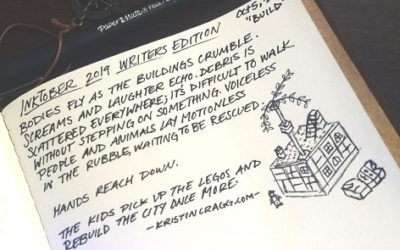 Oct 5, 
"BUILD"
INKTOBER 2019 WRITERS EDITION
BODIES FLY AS THE BUILDINGS CRUMBLE.
SCREAMS AND LAUGHTER ECHO. DEBRIS IS
SCATTERED EVERYWHERE; IT'S DIFFICULT TO WALK
WITHOUT STEPPING ON SOMETHING. VOICELESS
PEOPLE AND ANIMALS LAY MOTIONLESS
IN THE RUBBLE, WAITING TO BE RESCUED.
HANDS REACH DOWN.
THE KIDS PICK UP THE LEGOS AND
REBUILD THE CITY ONCE MORE.
-KRISTINCRAGG.COM-